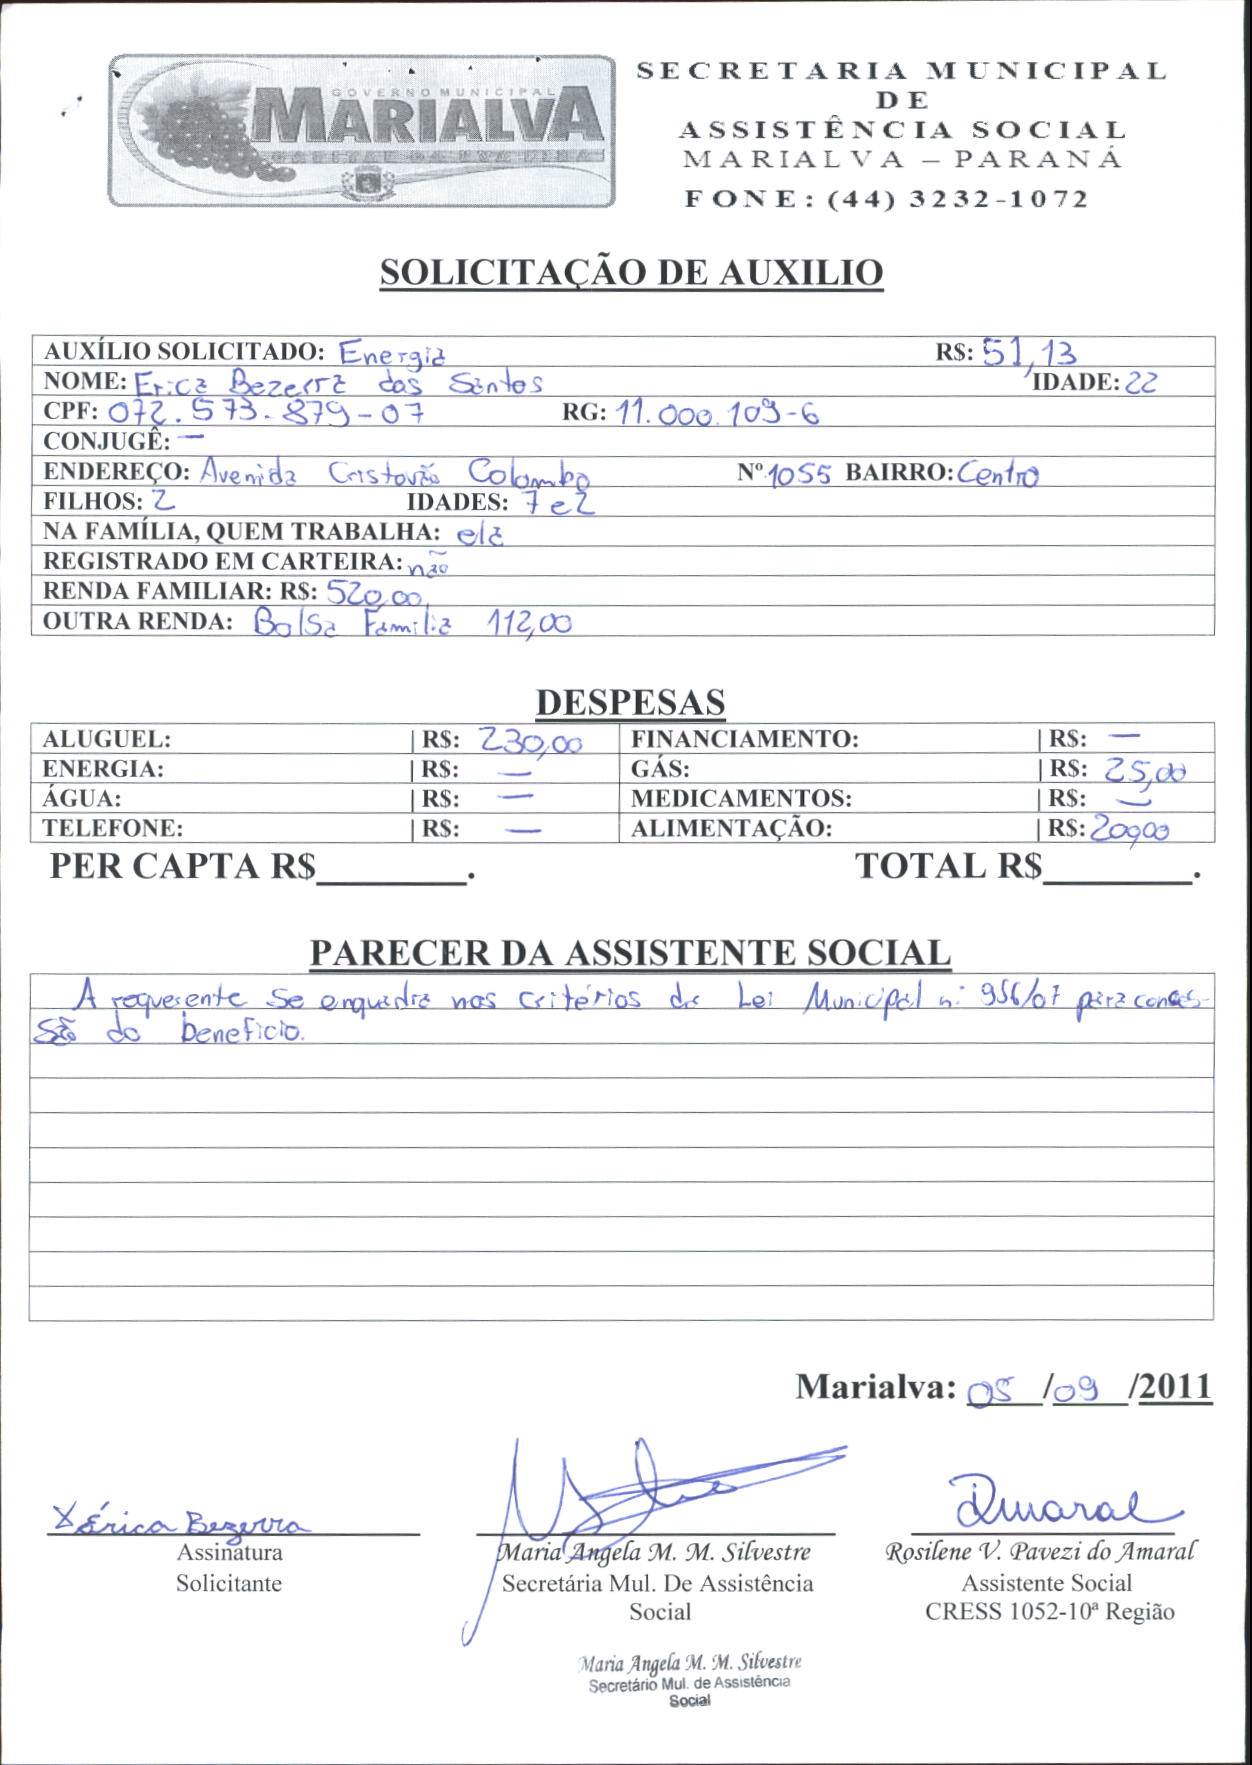 GOVERNO MUNICIPAL
MARIALVA
CAPITAL DA UVA FINA
SECRETARIA MUNICIPAL
DE
ASSISTÊNCIA SOCIAL
MARIALVA – PARANÁ
FONE: (44) 3232-1072
SOLICITAÇÃO DE AUXILIO
AUXÍLIO SOLICITADO: Energia R$: 51,13
NOME: Erica Bezerra dos Santos IDADE: 22
CPF: 072.573.879-07 RG: 11.000.109-6
CONJUGÊ: —
ENDEREÇO: Avenida Cristovão Colombo Nº 1055 BAIRRO: Centro
FILHOS: 2 IDADES: 7 e 2
NA FAMÍLIA, QUEM TRABALHA: ela
REGISTRADO EM CARTEIRA: não
RENDA FAMILIAR: R$: 520,00
OUTRA RENDA: Bolsa Família 112,00
DESPESAS
ALUGUEL: | R$: 230,00 FINANCIAMENTO: | R$: —
ENERGIA: | R$: — GÁS: | R$: 25,00
ÁGUA: | R$: — MEDICAMENTOS: | R$: —
TELEFONE: | R$: — ALIMENTAÇÃO: | R$: 200,00
PER CAPTA R$________. TOTAL R$________.
PARECER DA ASSISTENTE SOCIAL
A requerente se enquadra nos critérios da Lei Municipal n: 956/07 para conces-
são do benefício.
Marialva: 05/09/2011
X Érica Bezerra Amaral
Assinatura Maria Angela M. M. Silvestre Rosilene V. Pavezi do Amaral
Solicitante Secretária Mul. De Assistência Assistente Social
Social CRESS 1052-10ª Região
Maria Angela M. M. Silvestre
Secretário Mul. de Assistência
Social